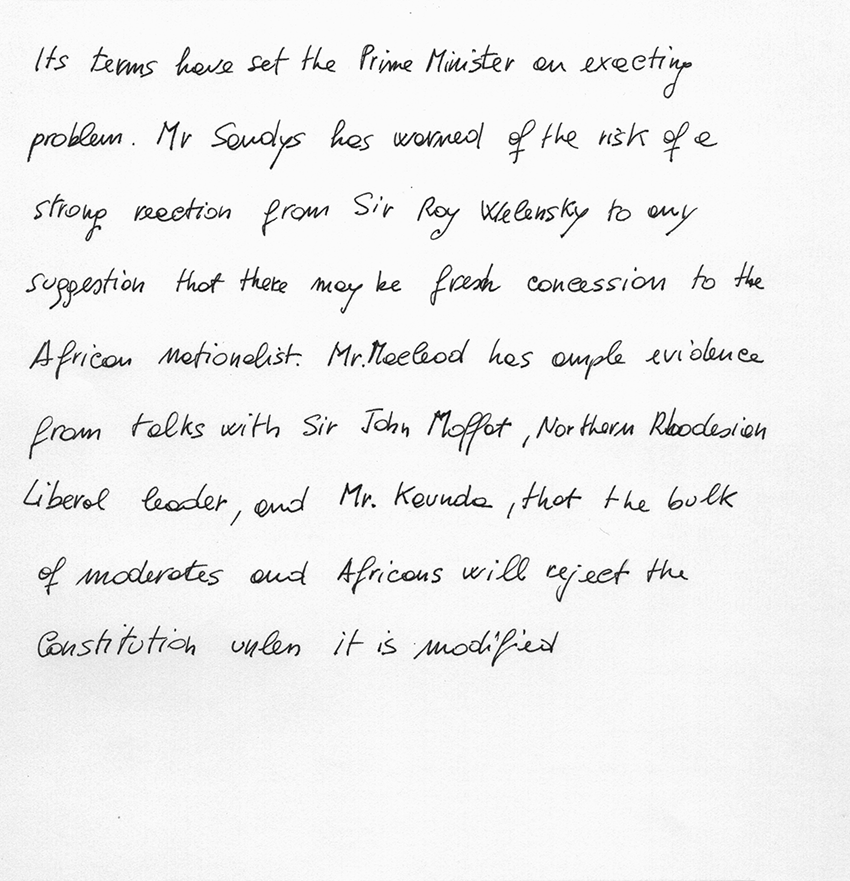 Its terms have set the Prime Minister an exacting
problem. Mr Sandys has warned of the risk of a
strong reection from Sir Roy Welensky to any
suggestion that there may be fresh concession to the
African nationalist. Mr. Macleod has ample evidence
from talks with Sir John Moffat, Northern Rhodesian
Liberal leader, and Mr. Kaunda, that the bulk
of moderates and Africans will reject the
Constitution unless it is modified